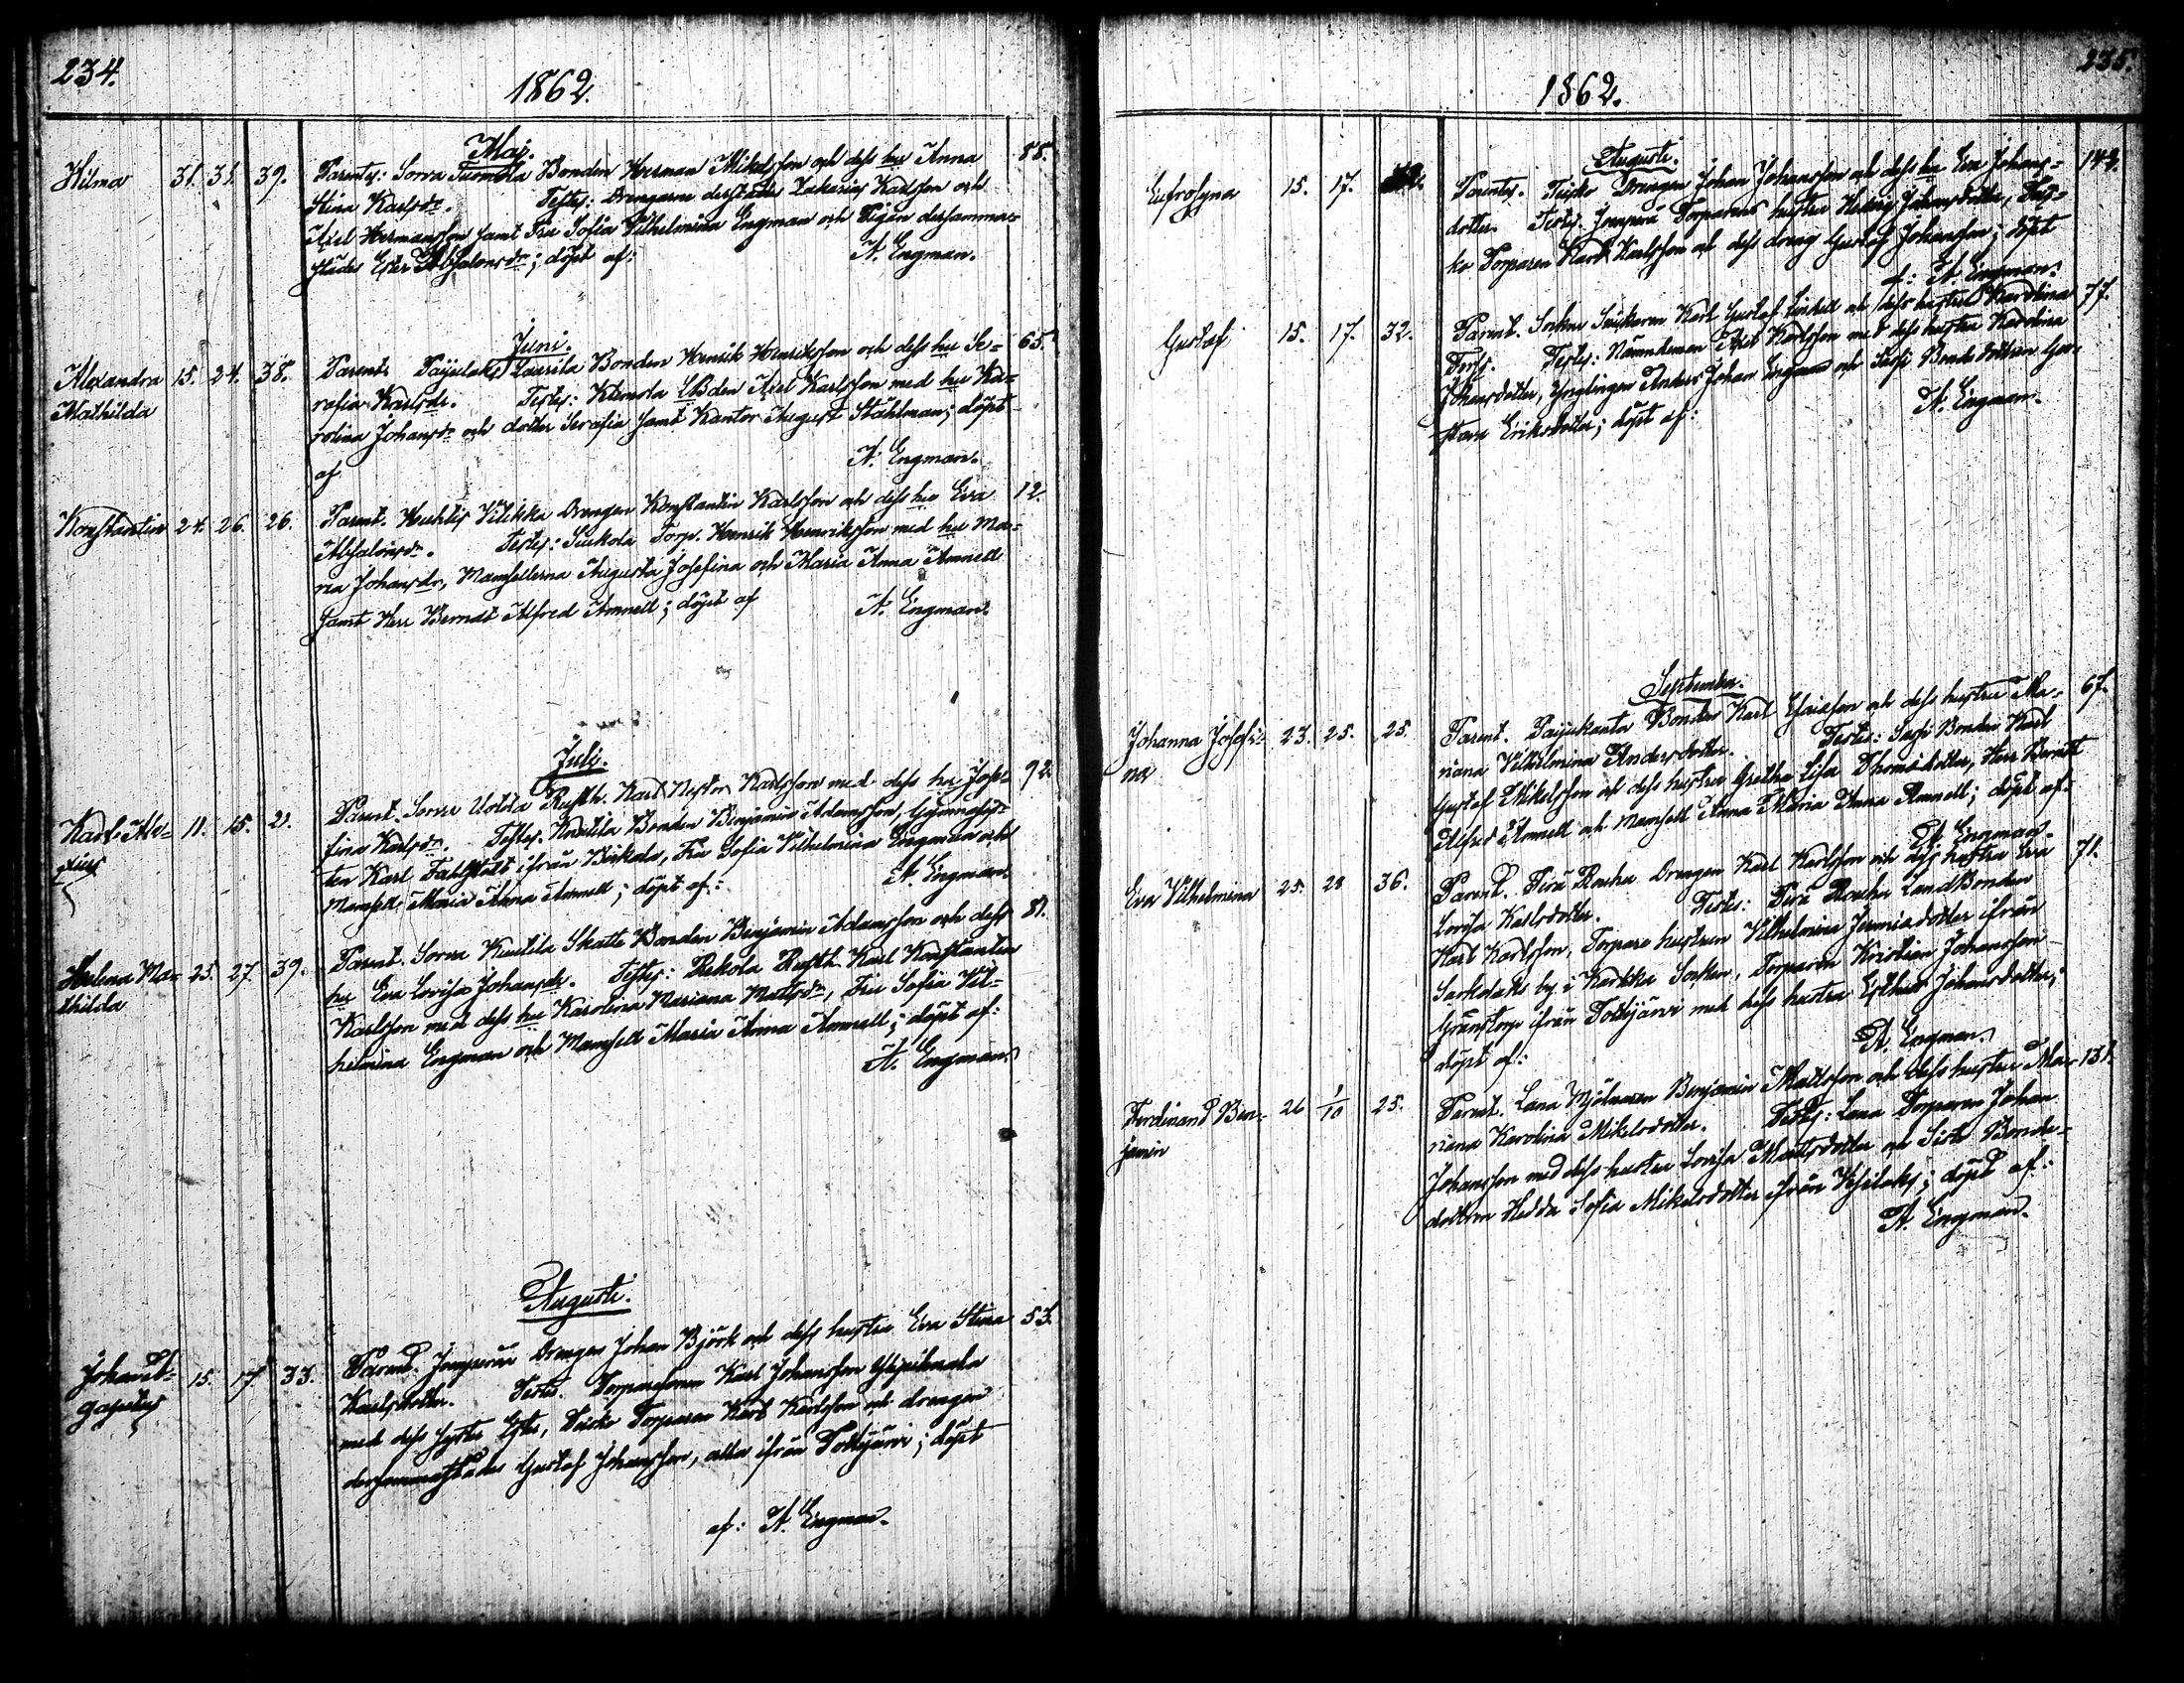 234.
1862.
Maj.
Hilma 31. 31. 39. Parentes: Sorva Tuomola Bonden Herman Mikelsson och dess hu Anna 88.
Stina Karlsdr. Testes: Drengarne derstädes Zakarias Karlsson och
Axel Hermansson samt Fru Sofia Vilhelmina Engman och Pigan dersamma-
städes Ester Absalonsdr; döpt af: A. Engman.
Juni.
Alexandra 15. 24. 38. Parent. Laurila Bonden Henrik Henriksson och dess hu Se- 65.
Mathilda
rafia Karlsdr. Testes: Axel Karlsson med hu Ka-
rolina Johansdr och dotter Serafia samt Kantor August Ståhlman; döpt
af A. Engman.
Konstantin 24. 26. 26. Parent. Huhtis Vilikka Drengen Konstantin Karlsson och dess hu Eva 12.
Absalonsdr. Testes: Suckola Torp. Henrik Henriksson med hu Ma-
ria Johansdr, Mamsellerna Augusta Josefina och Maria Anna Amnell
samt Herr Berndt Alfred Amnell; döpt af A. Engman.
Juli.
Karl 11. 15. 21. Parent. Sorva Uotila Rusth. Karl Nestor Karlsson med dess hu Jose- 92.
fina Karlsdr. Testes. Knutila Bonden Benjamin Adamsson,
ten Karl ifrån Birkala, Fru Sofia Vilhelmina Engman och
Mamsell Maria Anna Amnell; döpt af: A. Engman
Helena Ma- 25. 27. 39. Parent. Sorva Knutila Skatte Bonden Benjamin Adamsson och dess 81.
thilda
hu Eva Lovisa Johansdr. Testes: Rekola Rusth. Karl Konstantin
Karlsson med dess hu Karolina Mariana Mattsdr, Fru Sofia Vil-
helmina Engman och Mamsell Maria Anna Amnell; döpt af:
A. Engman.
Augusti.
Johan A- 15. 17. 33. Parent. Drengen Johan Björk och dess hustru Eva Stina 53.
gapetus
Karlsdotter. Testes. Torparsonen Karl Johansson
med dess syster Ester, Torparen Karl Karlsson och drengen
dersammastädes Gustaf Johansson, alla ifrån Tottijärvi; döpt
af: A. Engman.
235.
1862.
Augusti.
Eufrosyna 15. 17. Parentes. Drengen Johan Johansson och dess hu Eva Johans-
dotter. Testes. Torparens hustru Hedvig Johansdotter,
ko Torparen Karl Karlsson och dess dreng Gustaf Johansson; döpt
af: A. Engman.
Gustaf 15. 17. 32. Parent. Karl Gustaf och dess hustru Karolina 77.
Testes: Nämndeman Axel Karlsson med dess hustru Karolina
Johansdotter, Ynglingen Anders Johan Engman och Bonde dottren Gu-
stava Eriksdotter; döpt af: A. Engman.
September.
Johanna Josefi- 23. 25. 25. Parent. Bonden Karl Esaiasson och dess hustru Ma- 67.
na
riana Vilhelmina Andersdotter. Testes: Bonden Karl
Gustaf Mikelsson och dess hustru Gretha Lisa Thomasdotter, Herr Berndt
Alfred Amnell och Mamsell Anna Maria Anna Amnell; döpt af
A. Engman.
Eva Vilhelmina 25. 28 36. Parent. Drengen Karl Karlsson och dess hustru Eva 71.
Lovisa Karlsdotter. Testes: LandBonden
Karl Karlsson, Torpare hustrun Vilhelmina Jeremiadotter ifrån
by i Karkku Socken, Torparen Kristian Johansson
ifrån Tottijärvi med dess hustru Esther Johansdotter;
döpt af: A. Engman.
Ferdinand Ben- 26 1/10 25. Parent. Lana Mjölnaren Benjamin Mattsson och dess hustru Ma- 131.
jamin
riana Karolina Mikelsdotter. Testes: Lana Torparen Johan
Johansson med dess hustru Lovisa Mattsdotter och Bonde-
dottren Hedda Sofia Mikelsdotter ifrån Vesilaks; döpt af:
A. Engman.